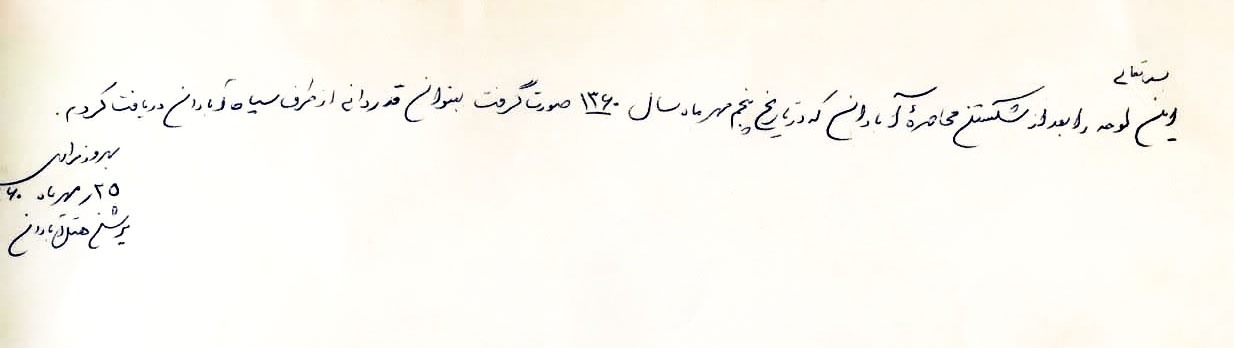 بسمه‌تعالی
این لوحه را بعد از شکستن محاصرهٔ آبادان که در تاریخ پنجم مهر ماه سال ۱۳۶۰ صورت گرفت بعنوان قدردانی از طرف سپاه آبادان دریافت کردم.
بهروز مرادی
۲۵ مهر ماه ۶۰
پرشین هتل آبادان